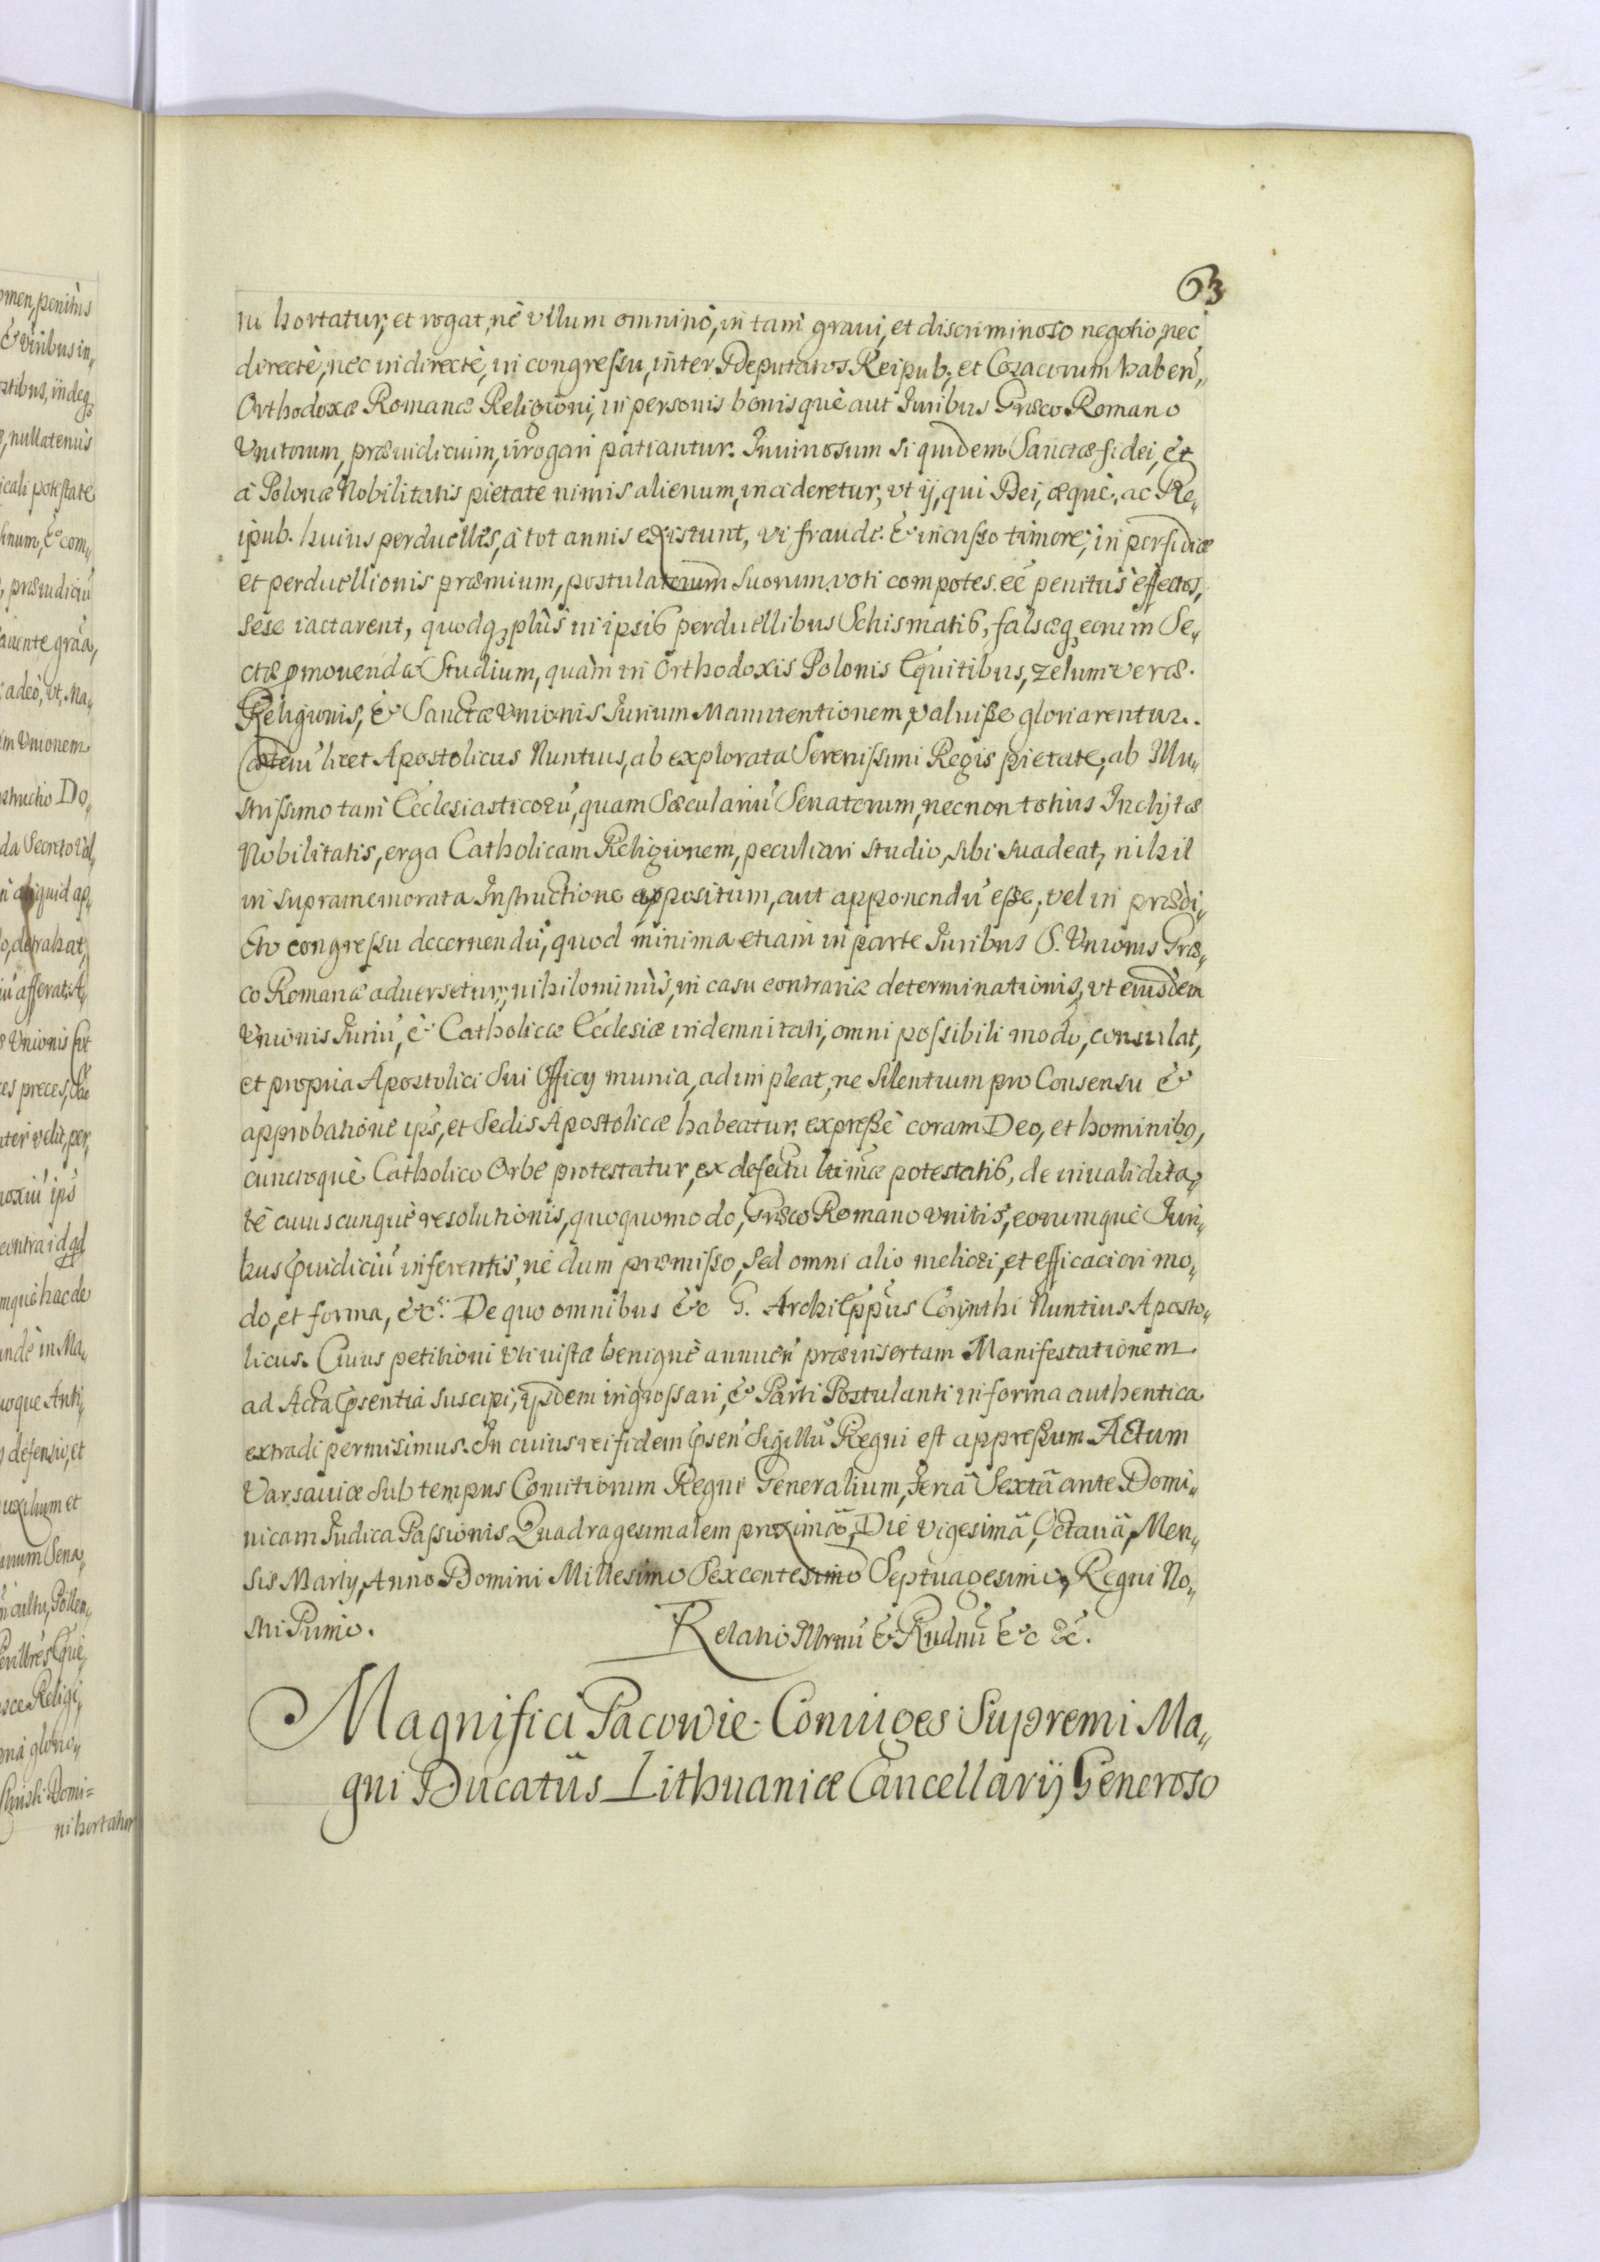 63
ni hortatur, et rogat, nè vllum omninò, in tam graui, et discriminoso negotio, nec
directè, nec indirectè, in congressu, inter Deputatos Reipub; et Cosacorum haben„
Orthodoxæ Romanæ Religioni, in personis bonisquè aut Juribus Græco Romano
Vnitorum, præiudicium, irrogari patiantur. Iniuriosum siquidem Sanctæ fidei, et
à Polonæ Nobilitatis pietate nimis alienum, incideretur, vt ij, qui Dei, æquè, ac Re„
ipub. huius perduelles, à tot annis existunt, vi fraude. & incusso timore, in perfidiæ
et perduellionis præmium, postulatorum suorum voti compotes eé penitus effectos,
sese iactarent, quodq3 plùs in ipsis perduellibus Schismatis, falsæq3 eorum Se„
ctæ pmouendæ Studium, quàm in Orthodoxis Polonis Equitibus, zelum veræ.
Religionis, & Sanctæ Vnionis Jurium Manutentionem, valuiße gloriarentur.
licet Apostolicus Nuntius, ab explorata Serenissimi Regis pietate, ab Illu„
strissimo tam Ecclesiasticorú, quam Sæculariú Senatorum, necnon totius Inclytæ
Nobilitatis, erga Catholicam Religionem, peculiari studio, sibi suadeat, nihil
in supramemorata Instructione appositum, aut apponendú eße, vel in prædi„
cto congressu decernendú, quod minima etiam in parte Juribus S. Vnionis Græ„
co Romanæ aduersetur, nihilominùs, in casu contrariæ determinationis, vt eiusdem
Vnionis Juriú, & Catholicæ Ecclesiæ indemnitati, omni possibili modo, consulat,
et propria Apostolici Sui Officij munia, adimpleat, ne Silentium pro Consensu &
approbatione ips, et Sedis Apostolicæ habeatur, expreßè coram Deo, et hominib9,
cunctoquè Catholico Orbe protestatur, ex defectu ltimæ potestatis, de inualidita„
té cuiuscunquè resolutionis, quoquomodo, Græco Romano vnitis, eorumquè Juri„
bus puidiciú inferentis, ne dum præmisso, sed omni alio meliori, et efficaciori mo„
do, et forma, &c: De quo omnibus &c G. Archieppus Corynthi Nuntius Aposto„
licus. Cuius petitioni vti iustæ benignè annuen præinsertam Manifestationem
ad Acta psentia suscipi, ijsdem ingrossari, & Parti Postulanti in forma authentica
extradi permisimus. In cuius rei fidem psen Sigillú Regni est appreßum Actum
Varsauiæ sub tempus Comitiorum Regni Generalium, Feriâ Sextâ ante Domi„
nicam Judica Passionis Quadragesimalem proximâ, Die vigesimâ, Octauâ, Men„
sis Martij, Anno Domini Millesimo Sexcentesimo Septuagesimo, Regni No„
stri Primo.
Relatio Illrmi & Rndmi &c &c.
Magnifici Pacowie Coniuges Supremi Ma„
gni Ducatûs Lithuaniæ Cancellarij Generoso